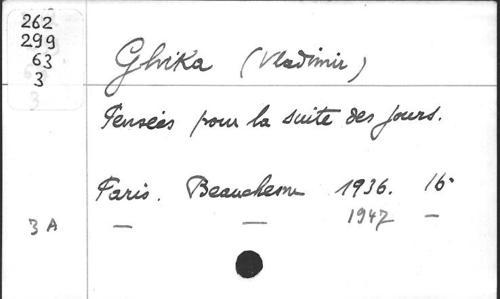 262
299
63
3
Ghika (Vladimir)
Pensées pour la suite des jours.
Paris. Beauchesne 1936. 16°
3 A — — 1947 —